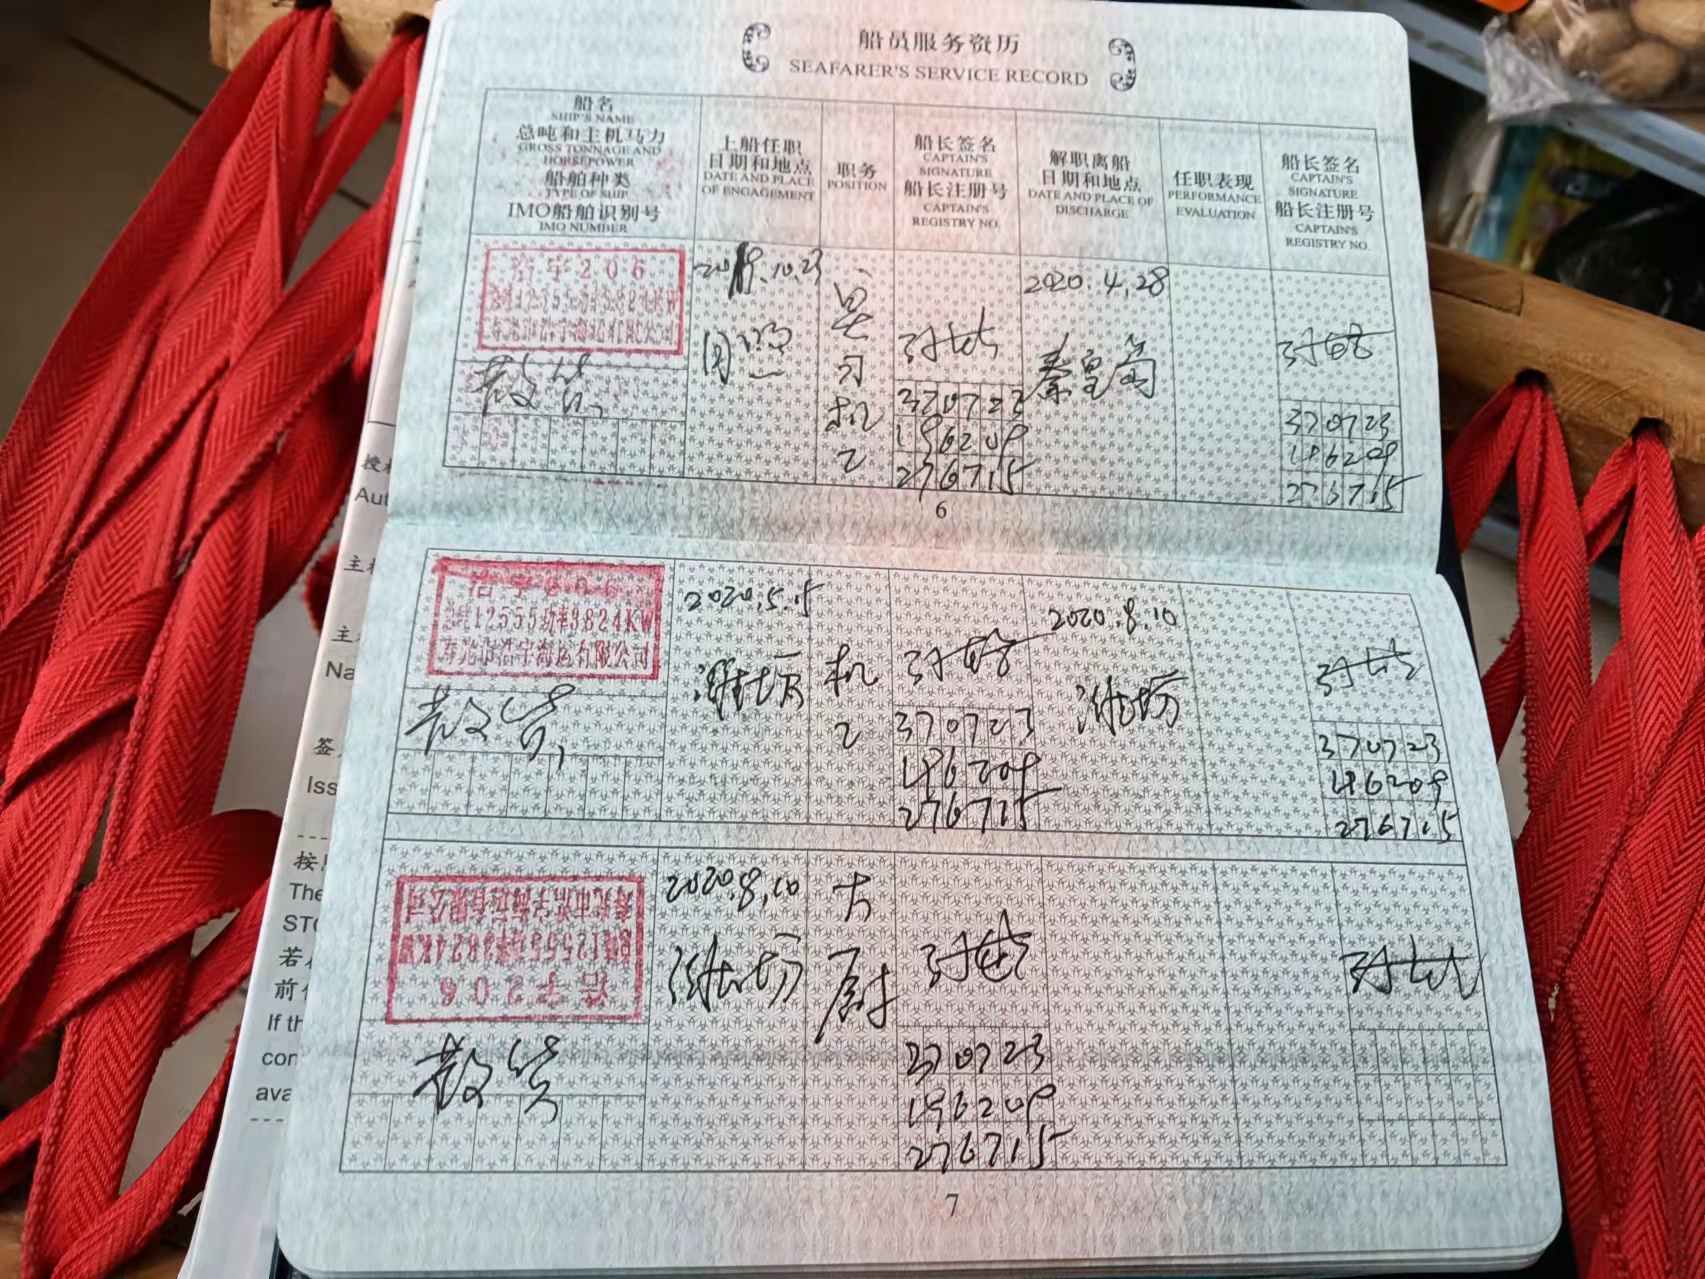 船员服务资历
SEAFARER'S SERVICE RECORD
船名
SHIP'S NAME
总吨和主机马力
GROSS TONNAGE AND
HORSEPOWER
船舶种类
TYPE OF SHIP
IMO船舶识别号
IMO NUMBER
上船任职
日期和地点
DATE AND PLACE
OF ENGAGEMENT
职务
POSITION
船长签名
CAPTAIN'S
SIGNATURE
船长注册号
CAPTAIN'S
REGISTRY NO.
解职离船
日期和地点
DATE AND PLACE OF
DISCHARGE
任职表现
PERFORMANCE
EVALUATION
船长签名
CAPTAIN'S
SIGNATURE
船长注册号
CAPTAIN'S
REGISTRY NO.
浩宇206
寿光市浩宇海运有限公司
散货
2019.10.23
日照
见习机工
370723
196209
276715
2020.4.28
秦皇岛
370723
196209
276715
6
浩宇206
总吨12555功率3824KW
寿光市浩宇海运有限公司
散货
2020.5.15
潍坊
机工
370723
196209
276715
2020.8.10
潍坊
370723
196209
276715
浩宇206
总吨12555功率3824KW
寿光市浩宇海运有限公司
散货
2020.8.10
潍坊
大厨
370723
196209
276715
7
Aut
Na
Iss
The
If th
con
ava